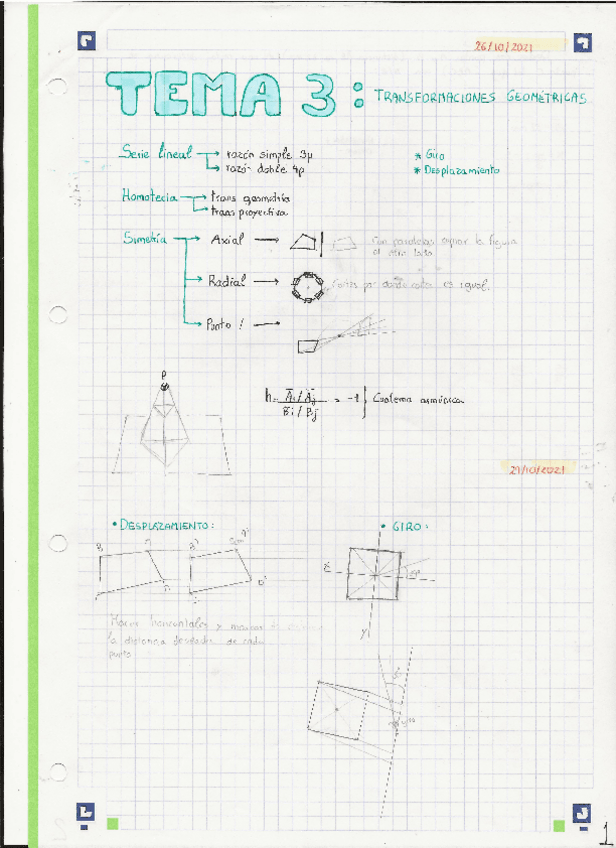 26/10/2021
TEMA 3: TRANSFORMACIONES GEOMÉTRICAS
Serie lineal → razón simple 3µ
→ razón doble 4p
* Giro
* Desplazamiento
Homotecia → trans geometría
→ trans proyectiva
Simetría → Axial →
la figura
al otro lado
→ Radial →
Cortes por donde cortes es igual.
→ Punto / →
P
h = Ai / Aj = -1 } Cuaterna armónica
Bi / Bj
27/10/2021
• DESPLAZAMIENTO:
• GIRO:
B
B'
D'
Y
Hacer horizontales y
la distancia deseada de cada
punto
1